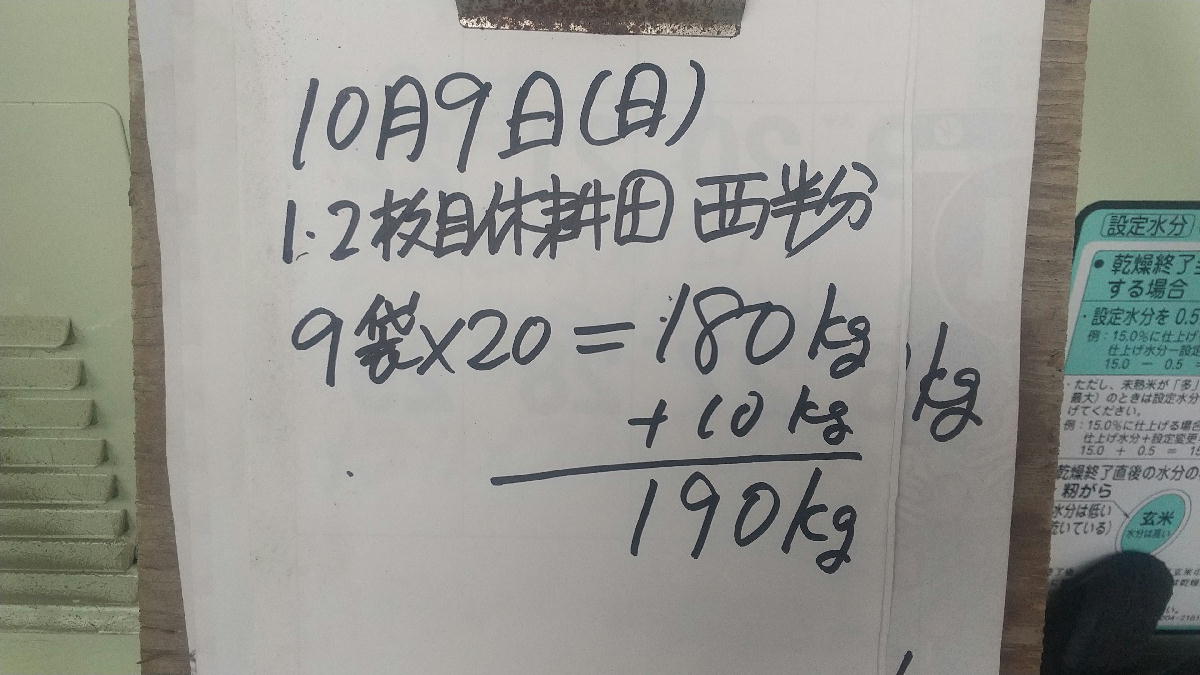 10月9日(日)
1.2枚目休耕田 西半分
9袋×20=180kg
+10kg
190kg
kg
設定水分
● 乾燥終了
する場合
・設定水分を 0.5
例:15.0%に仕上げ
仕上げ水分ー設
15.0 － 0.5 =
・ただし、未熟米が「多」
最大)のときは設定水分
げてください。
例:15.0%に仕上げる場合
仕上げ水分＋設定変更
15.0 ＋ 0.5 = 15
乾燥終了直後の水分の
籾がら
水分は低い
乾いている)
玄米
水分は高い